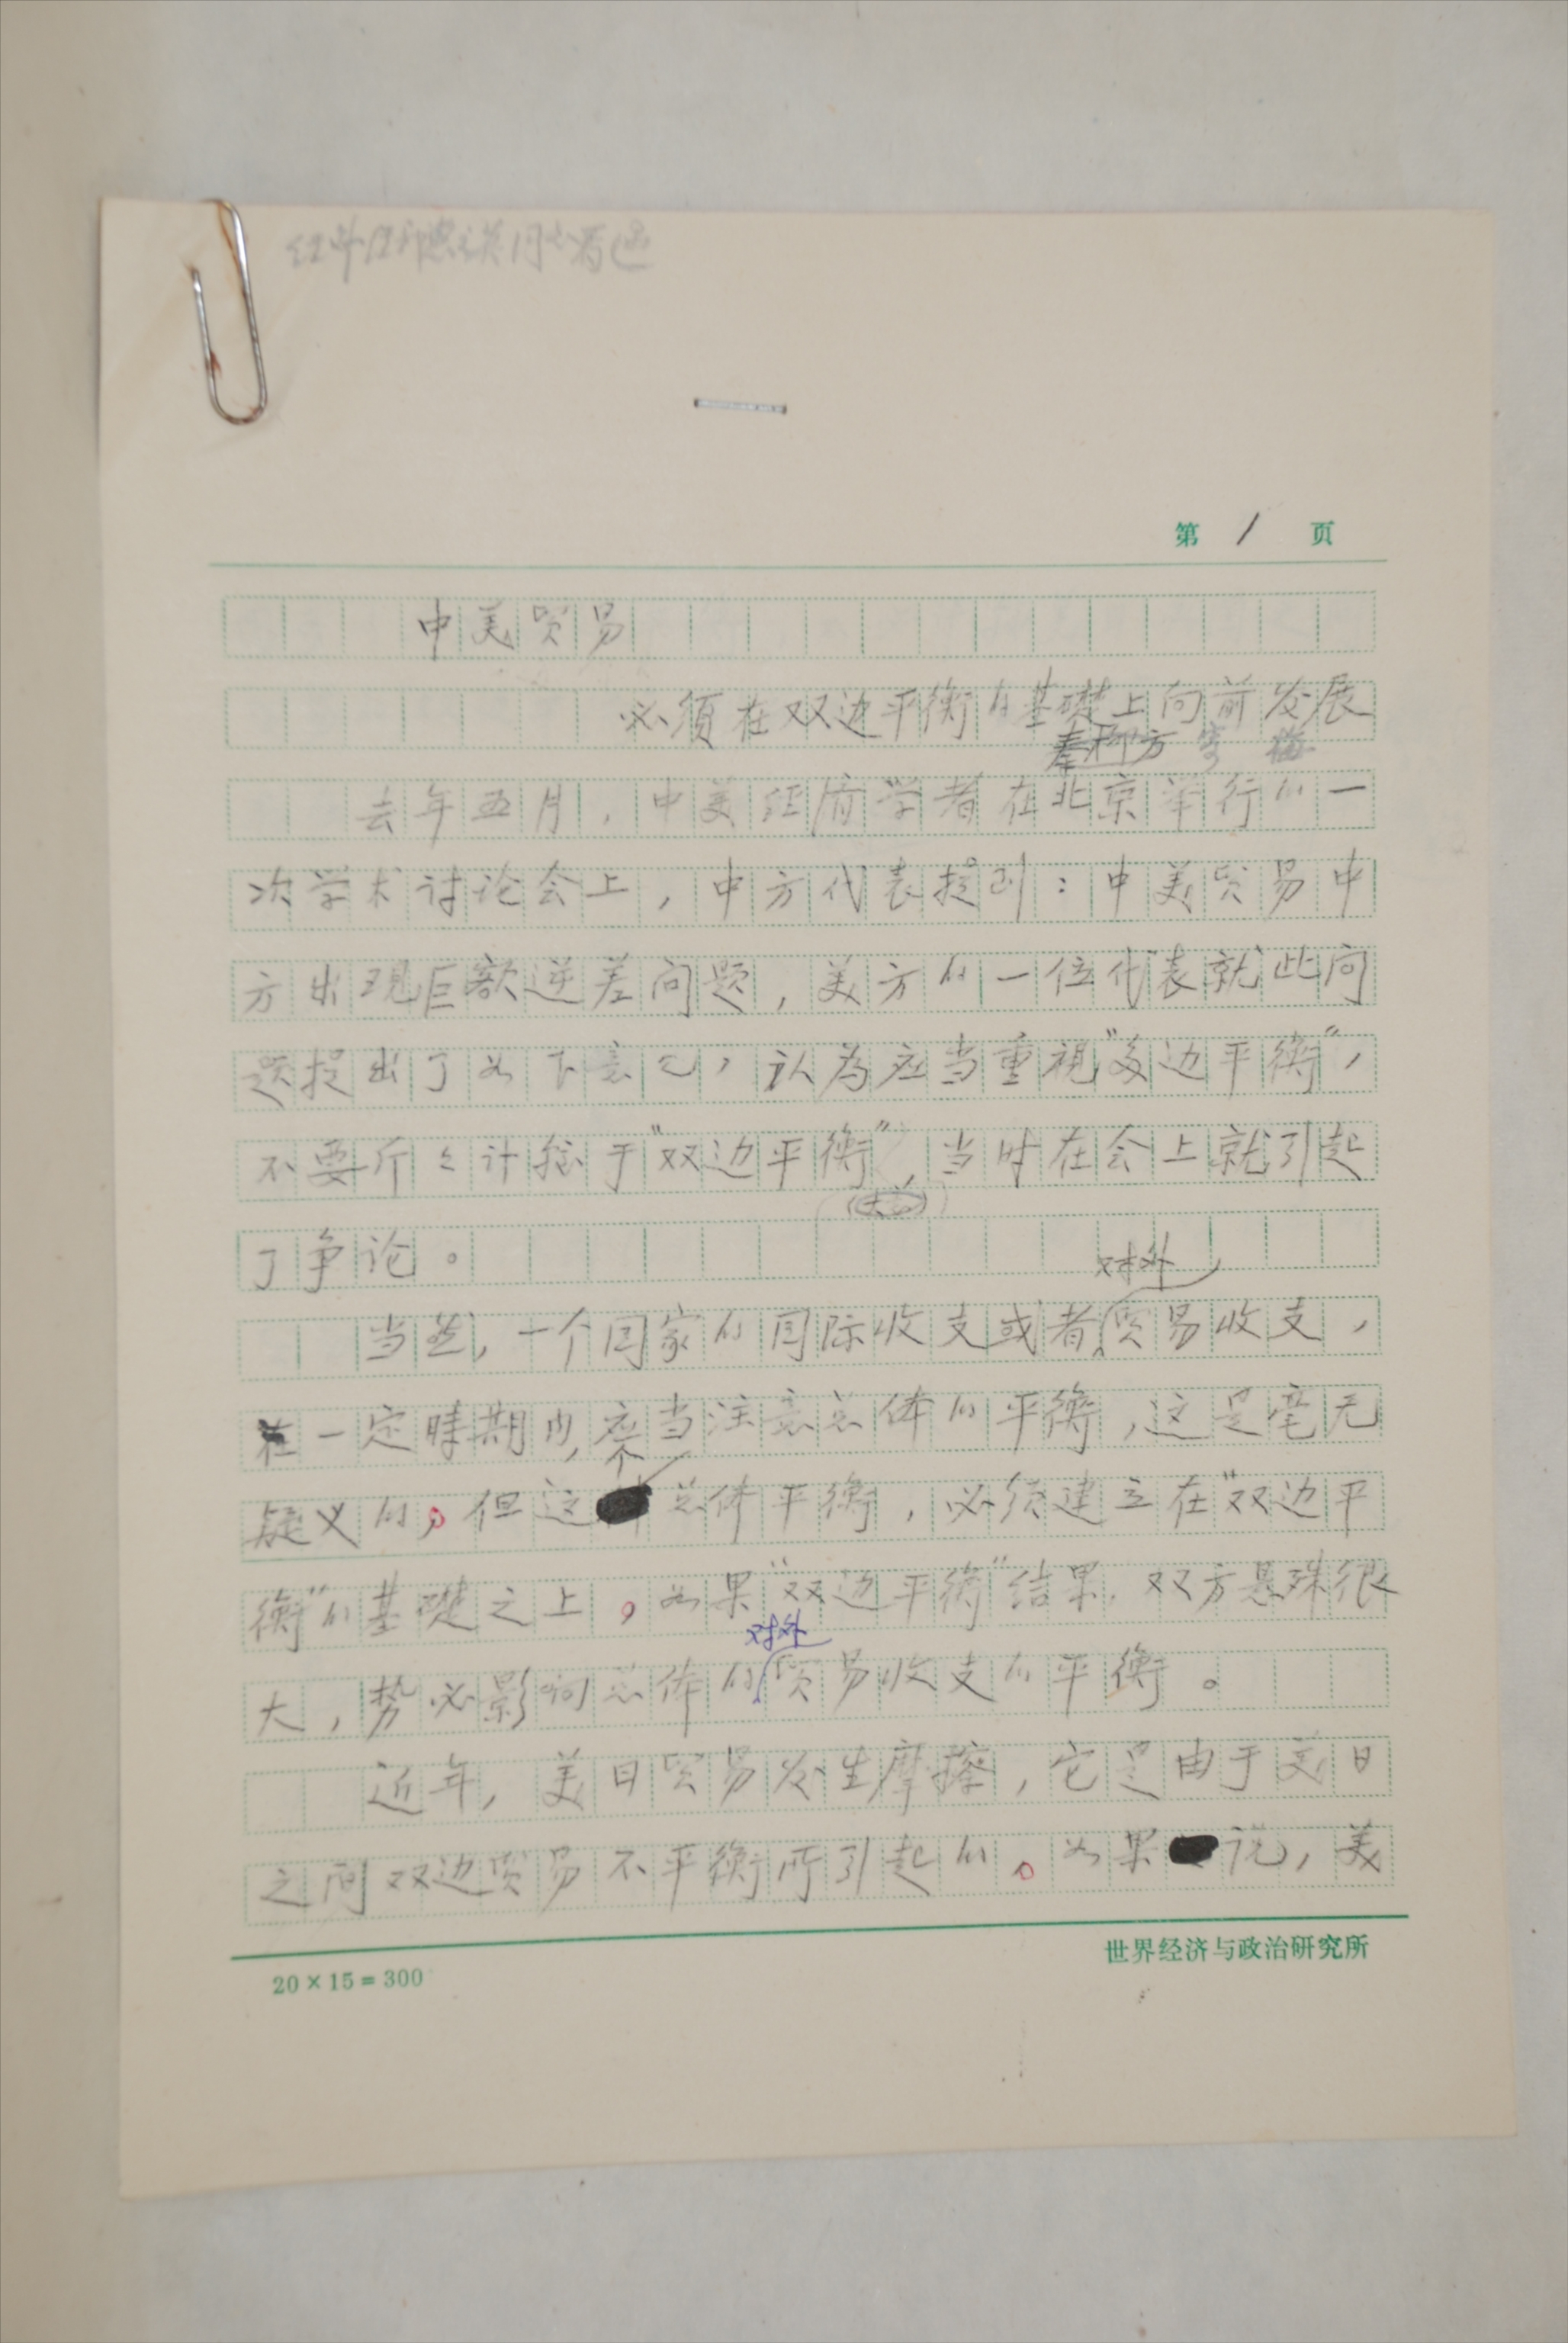 第 1 页
中美贸易
必须在双边平衡的基礎上向前发展
去年五月,中美经济学者在北京举行的一
次学术讨论会上,中方代表提到:中美贸易中
方出现巨额逆差问题,美方的一位代表就此问
题提出了如下意见,认为应当重視“多边平衡”,
不要斤々计较于“双边平衡”,当时在会上就引起
了争论。
对外
当然,一个国家的国际收支或者贸易收支,
在一定時期内,应当注意总体的平衡,这是毫无
疑义的。但这个总体平衡,必须建立在“双边平
衡”的基礎之上。如果“双边平衡”结果,双方悬殊很
对外
大,势必影响总体的贸易收支的平衡。
近年,美日贸易发生摩擦,它是由于美日
之间双边贸易不平衡所引起的。如果说,美
20×15=300
世界经济与政治研究所